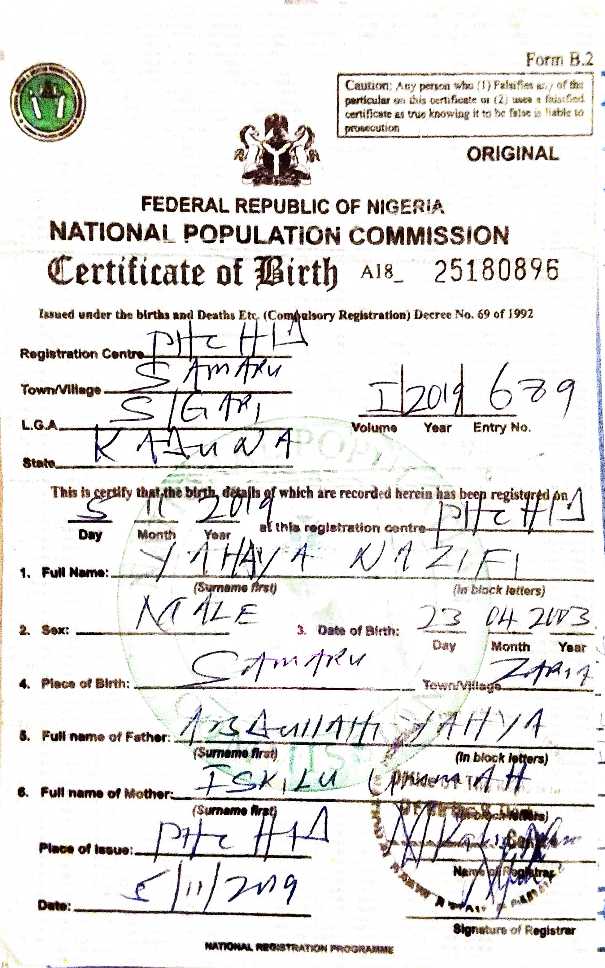 Form B.2
Caution: Any person who (1) Falsifies any of the
particular on this certificate or (2) uses a falsified
certificate as true knowing it to be false is liable to
prosecution
ORIGINAL
FEDERAL REPUBLIC OF NIGERIA
NATIONAL POPULATION COMMISSION
Certificate of Birth A18_ 25180896
Issued under the births and Deaths Etc. (Compulsory Registration) Decree No. 69 of 1992
Registration Centre PHC H
Town/Village SAMARU
L.G.A. S/GARI
State KADUNA
I 2019 689
Volume Year Entry No.
This is certify that the birth, details of which are recorded herein has been registered on
5 11 2019 at this registration centre PHC H
Day Month Year
1. Full Name: YAHAYA NAZIFI
(Surname first) (In block letters)
2. Sex: MALE 3. Date of Birth: 23 04 2003
Day Month Year
4. Place of Birth: SAMARU Town/Village ZARIA
5. Full name of Father: ABDULLAHI YAHYA
(Surname first) (In block letters)
6. Full name of Mother: ISKILU
(Surname first) (In block letters)
Place of Issue: PHC H
Name of Registrar
Date: 5/11/2019
Signature of Registrar
NATIONAL REGISTRATION PROGRAMME